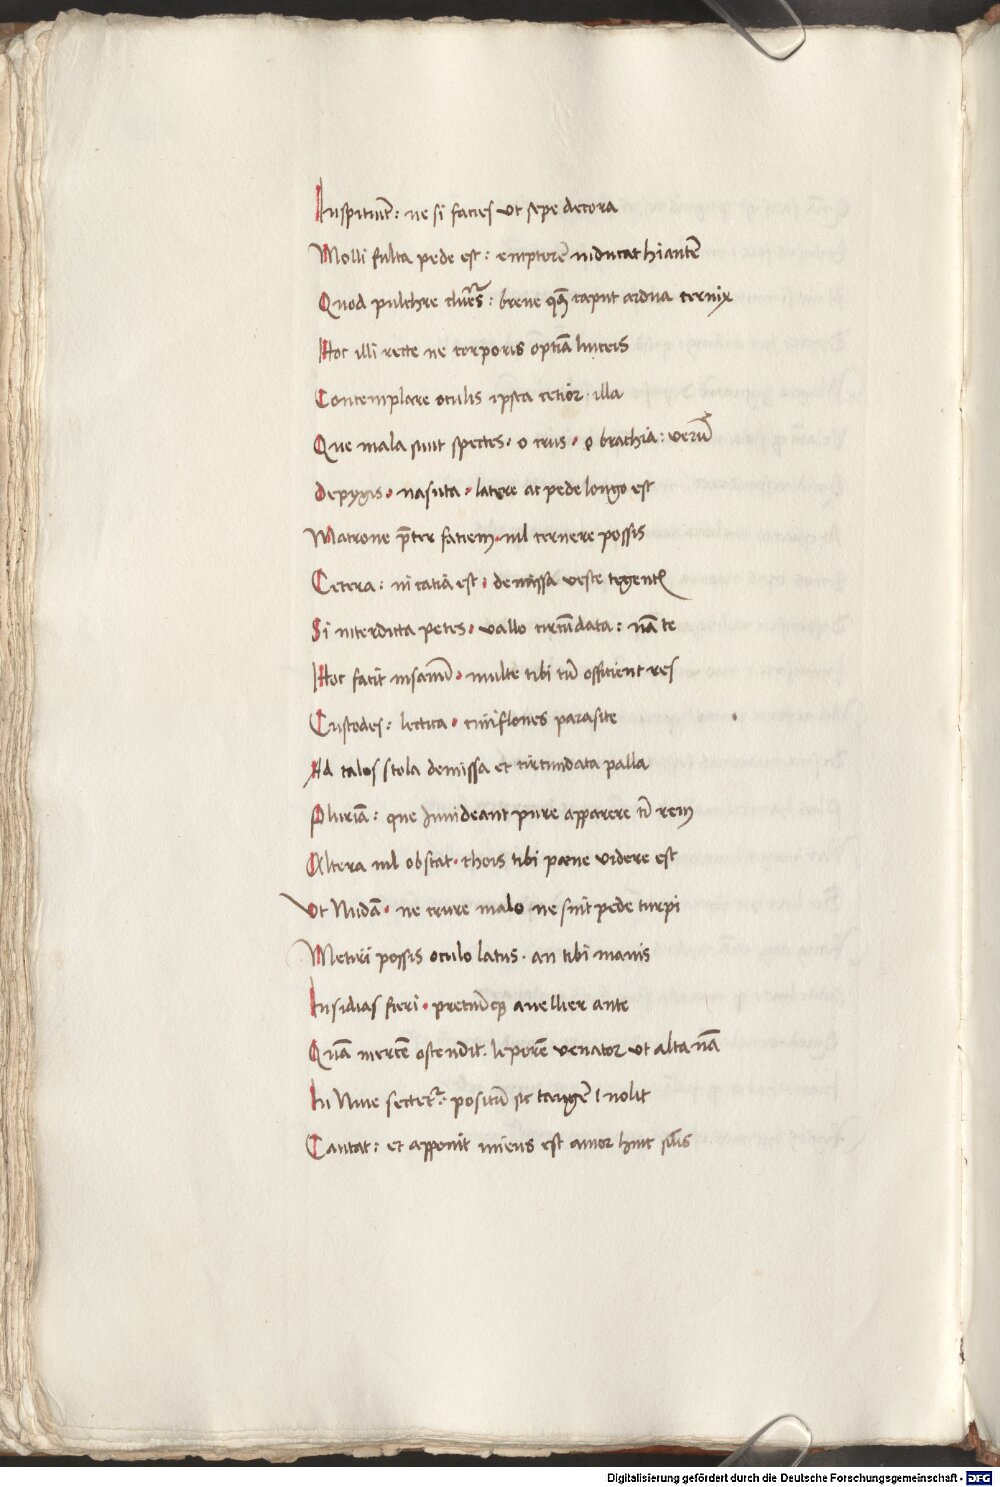 Inspitiūt: ne si facies ut sepe decora
Molli fulta pede est: emptorē inducat hiantē
Quod pulchre clunes: breue qd caput ardua ceruix
Hoc illi recte ne corporis optiā lynceis
Contemplare oculis ipsea cetior illa
Que mala sunt spectes. o crus. o brachia: verū
Depygis. nasuta. latere ac pede longo est
Matrone p̄ter faciem. nil cernere possis
Cetera: ni catia est. demissa veste tegentis
Si interdicta petes. vallo circūdata: nā te
Hoc facit insanū. multe tibi tū officient res
Custodes: lectica. ciniflones parasite
Ad talos stola demissa et circundata palla
Plurīa: que inuideant pure apparere tī rem
Altera nil obstat. chois tibi pæne videre est
Ut Nudā. ne crure malo ne sint pede turpi
Metiri possis oculo latus. an tibi mauis
Insidias fieri. pretiūcq auellier ante
Quā mercē ostendit. leporē venator ut alta nā
In Niue sectet^r: positū sic tangē nolit
Cantat: et apponit meus est amor huic sīlis
Digitalisierung gefördert durch die Deutsche Forschungsgemeinschaft - DFG